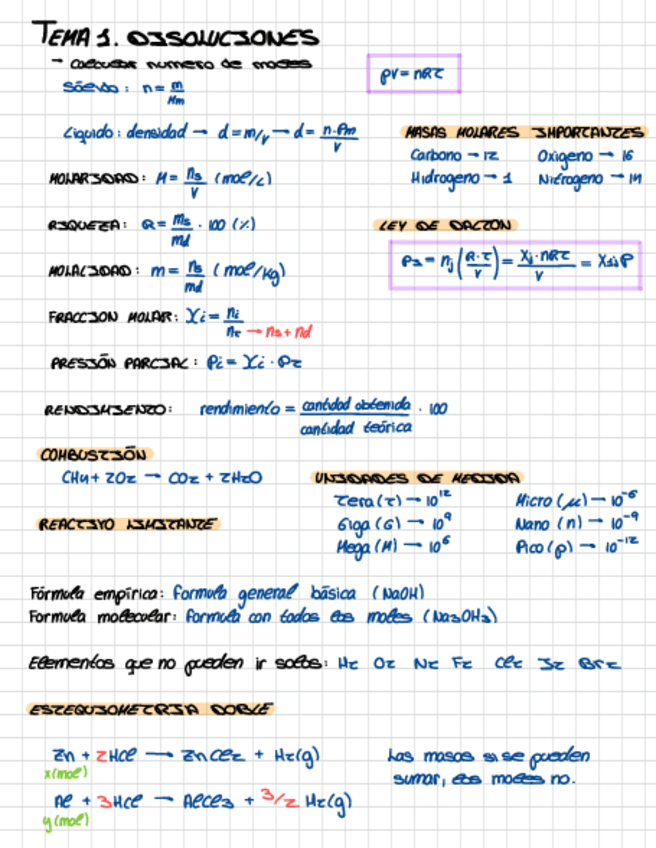 TEMA 1. DISOLUCIONES
- Calcular numero de moles
PV = nRT
Sólido: n = m/Mm
Líquido: densidad → d = m/v → d = n·Pm/V
MASAS MOLARES IMPORTANTES
Carbono → 12 Oxigeno → 16
Hidrogeno → 1 Nitrogeno → 14
MOLARIDAD: M = ns/V (mol/L)
RIQUEZA: R = ms/md · 100 (%)
LEY DE DALTON
MOLALIDAD: m = ns/md (mol/Kg)
PJ = nj (R·T/V) = Xj·nRT/V = XjP
FRACCION MOLAR: Xi = ni/nt → ns + nd
PRESIÓN PARCIAL: Pi = Xi · PT
RENDIMIENTO: rendimiento = cantidad obtenida/cantidad teórica · 100
COMBUSTIÓN
CH4 + 2O2 → CO2 + 2H2O
UNIDADES DE MEDIDA
Tera (T) → 10¹² Micro (μ) → 10⁻⁶
REACTIVO LIMITANTE
Giga (G) → 10⁹ Nano (n) → 10⁻⁹
Mega (M) → 10⁶ Pico (p) → 10⁻¹²
Fórmula empírica: formula general básica (NaOH)
Formula molecular: formula con todos los moles (Na3OH3)
Elementos que no pueden ir solos: H2 O2 N2 F2 Cl2 I2 Br2
ESTEQUIOMETRIA DOBLE
Zn + 2HCl → ZnCl2 + H2(g)
x(mol)
Las masas si se pueden
sumar, los moles no.
Al + 3HCl → AlCl3 + 3/2 H2(g)
y(mol)